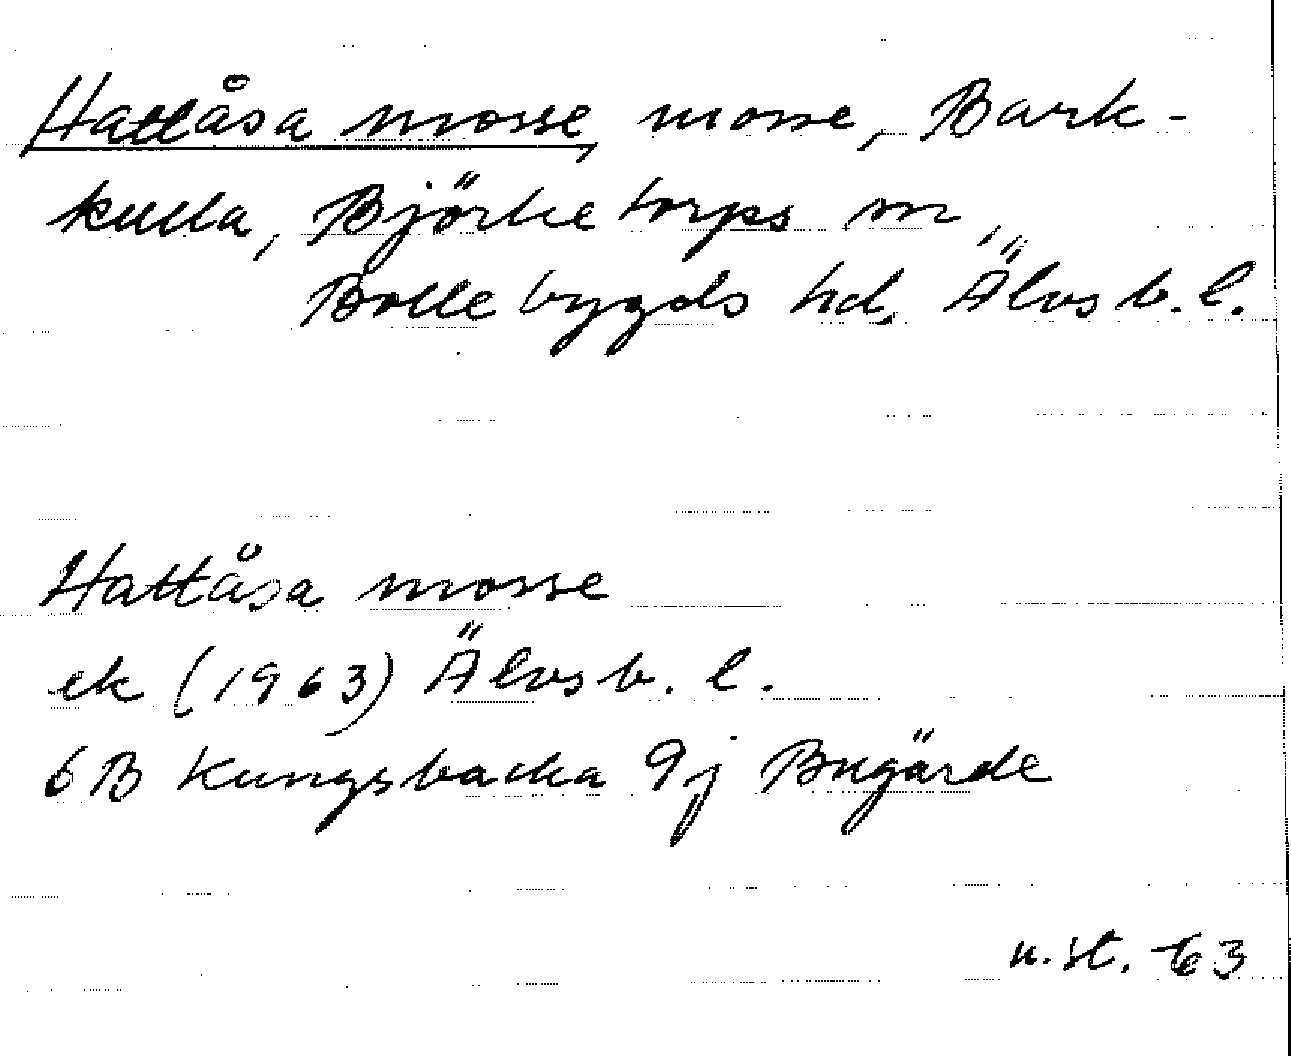 Hattåsa mosse, mosse, Bark-
kulla, Björketorps sn,
Bollebygds hd, Älvsb. l.
Hattåsa mosse
ek (1963) Älvsb. l.
6B Kungsbacka 9j Bugärde
u. st. -63